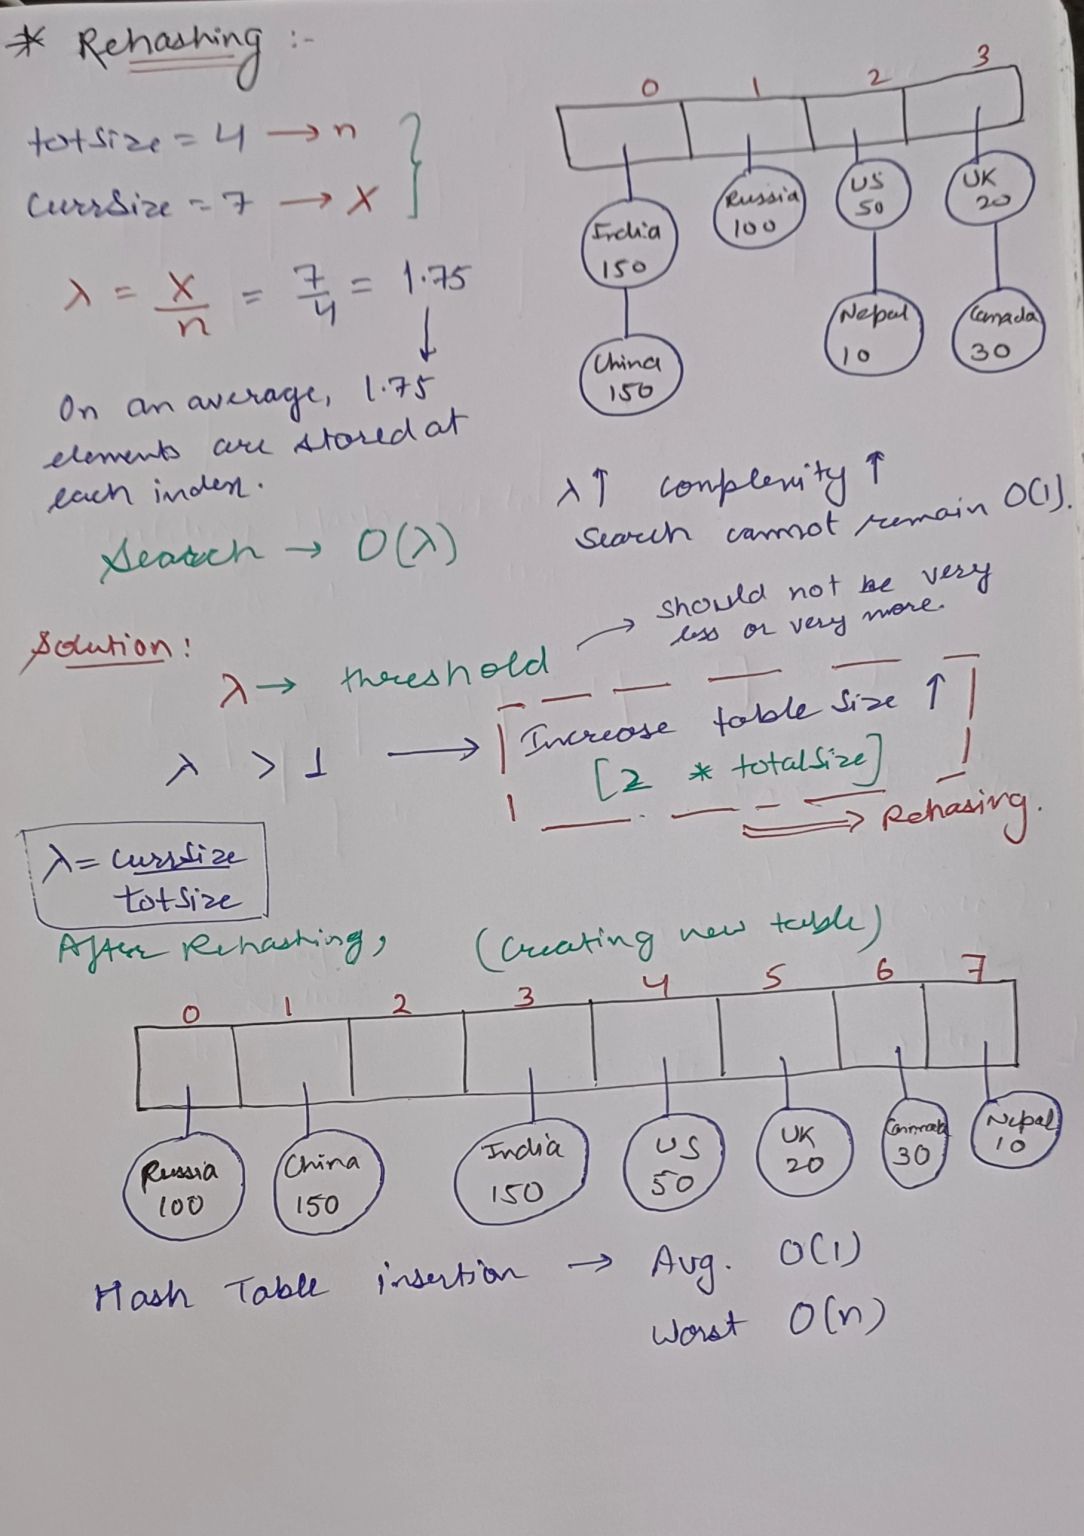 * Rehashing :-
totSize = 4 → n
currSize = 7 → X
λ = X/n = 7/4 = 1.75
On an average, 1.75
elements are stored at
each index.
Search → O(λ)
0 1 2 3
India 150
Russia 100
US 50
UK 20
China 150
Nepal 10
Canada 30
λ↑ complexity ↑
Search cannot remain O(1).
Solution:
λ → threshold → should not be very
less or very more.
λ > 1 → Increase table size ↑
[2 * totalSize]
⇒ Rehasing.
λ = currSize
totSize
After Rehashing, (Creating new table)
0 1 2 3 4 5 6 7
Russia 100
China 150
India 150
US 50
UK 20
30
Nepal 10
Hash Table insertion → Avg. O(1)
Worst O(n)